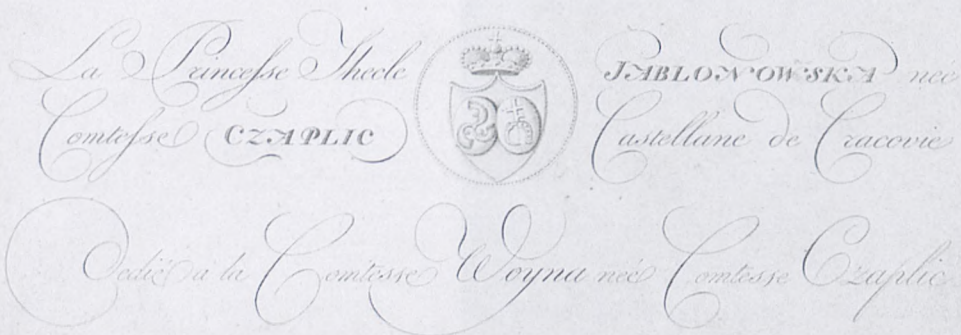 La Princesse Thecle JABLONOWSKA née
Comtesse CZAPLIC Castellane de Cracovie
Dedié a la Comtesse Woyna née Comtesse Czaplic